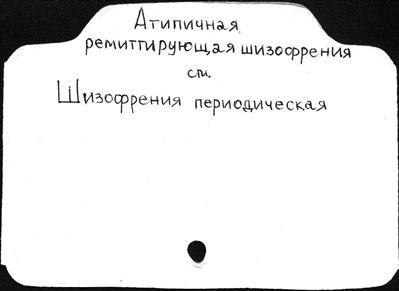 Атипичная
ремиттирующая шизофрения
см.
Шизофрения периодическая